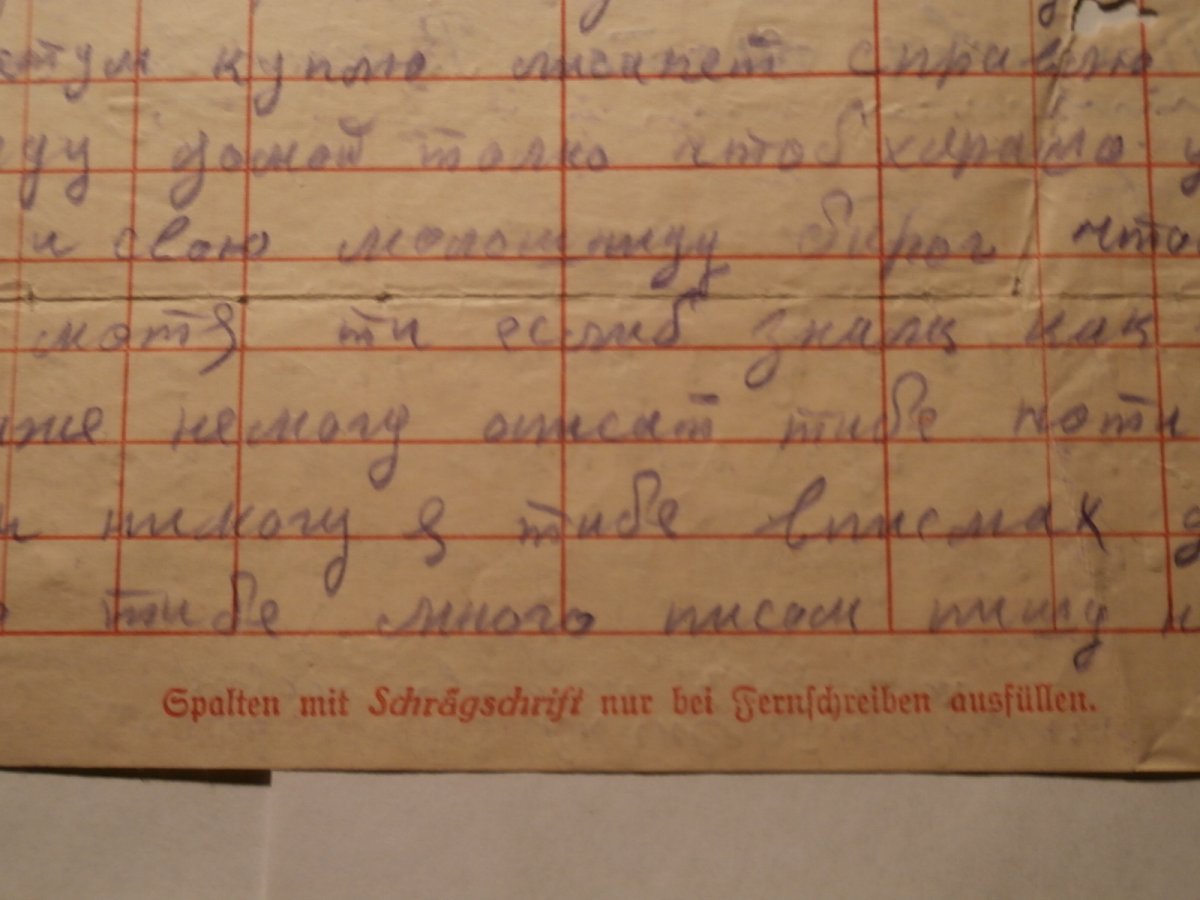 куплю лисапет справлю
домой толко чтоб харашо
и свою молошницу бирог что
мотя ти еслиб знала как
немогу описат тибе
никогу я тибе вписмах
тибе много писам пишу
Spalten mit Schrägschrift nur bei Fernschreiben ausfüllen.